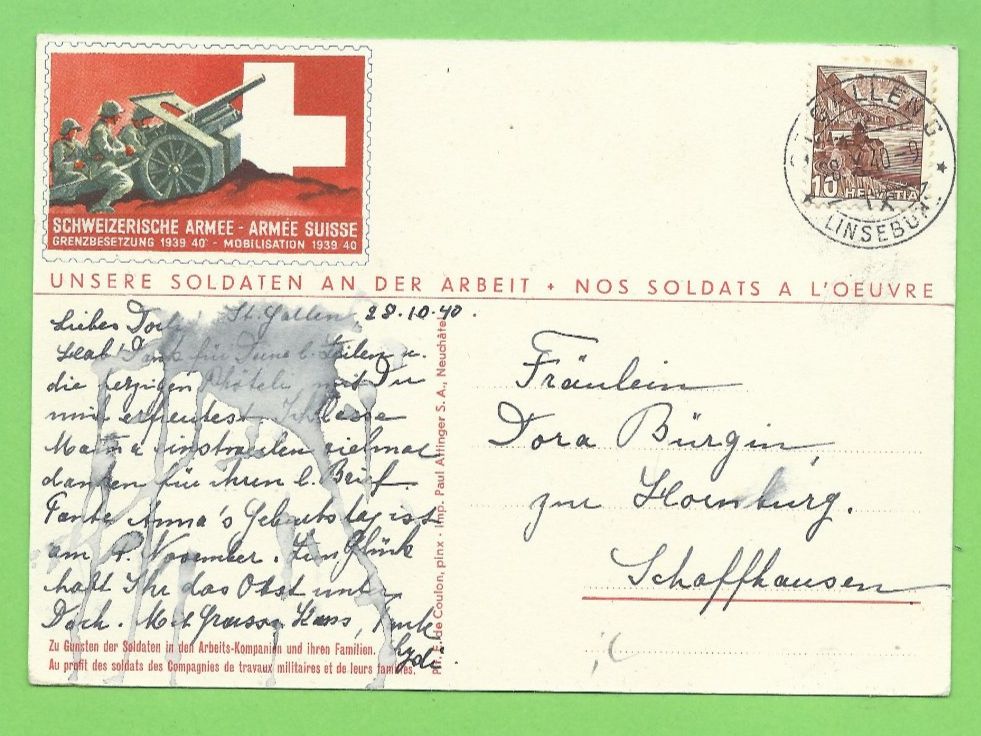 SCHWEIZERISCHE ARMEE - ARMÉE SUISSE
GRENZBESETZUNG 1939 40 - MOBILISATION 1939 40
10 HELVETIA
ST. GALLEN
28. X. 40 - 9
LINSEBÜHL
UNSERE SOLDATEN AN DER ARBEIT + NOS SOLDATS A L'OEUVRE
St. Gallen, 28.10.40.
Liebes Dorly
Hab Dank für Deine l. Zeilen u.
die herzigen mit Du
mich erfreutest. Ich lasse
Mama vielmal
danken für ihren l. Brief.
Tante Anna's Geburtstag ist
am November. Zum Glück
habt Ihr das Obst unter
Dach. Mit Gruss u. Kuss, Tante
Zu Gunsten der Soldaten in den Arbeits-Kompanien und ihren Familien.
Au profit des soldats des Compagnies de travaux militaires et de leurs familles.
de Coulon, pinx - Imp. Paul Attinger S. A., Neuchâtel
Fräulein
Dora Bürgin,
zur Hornburg.
Schaffhausen